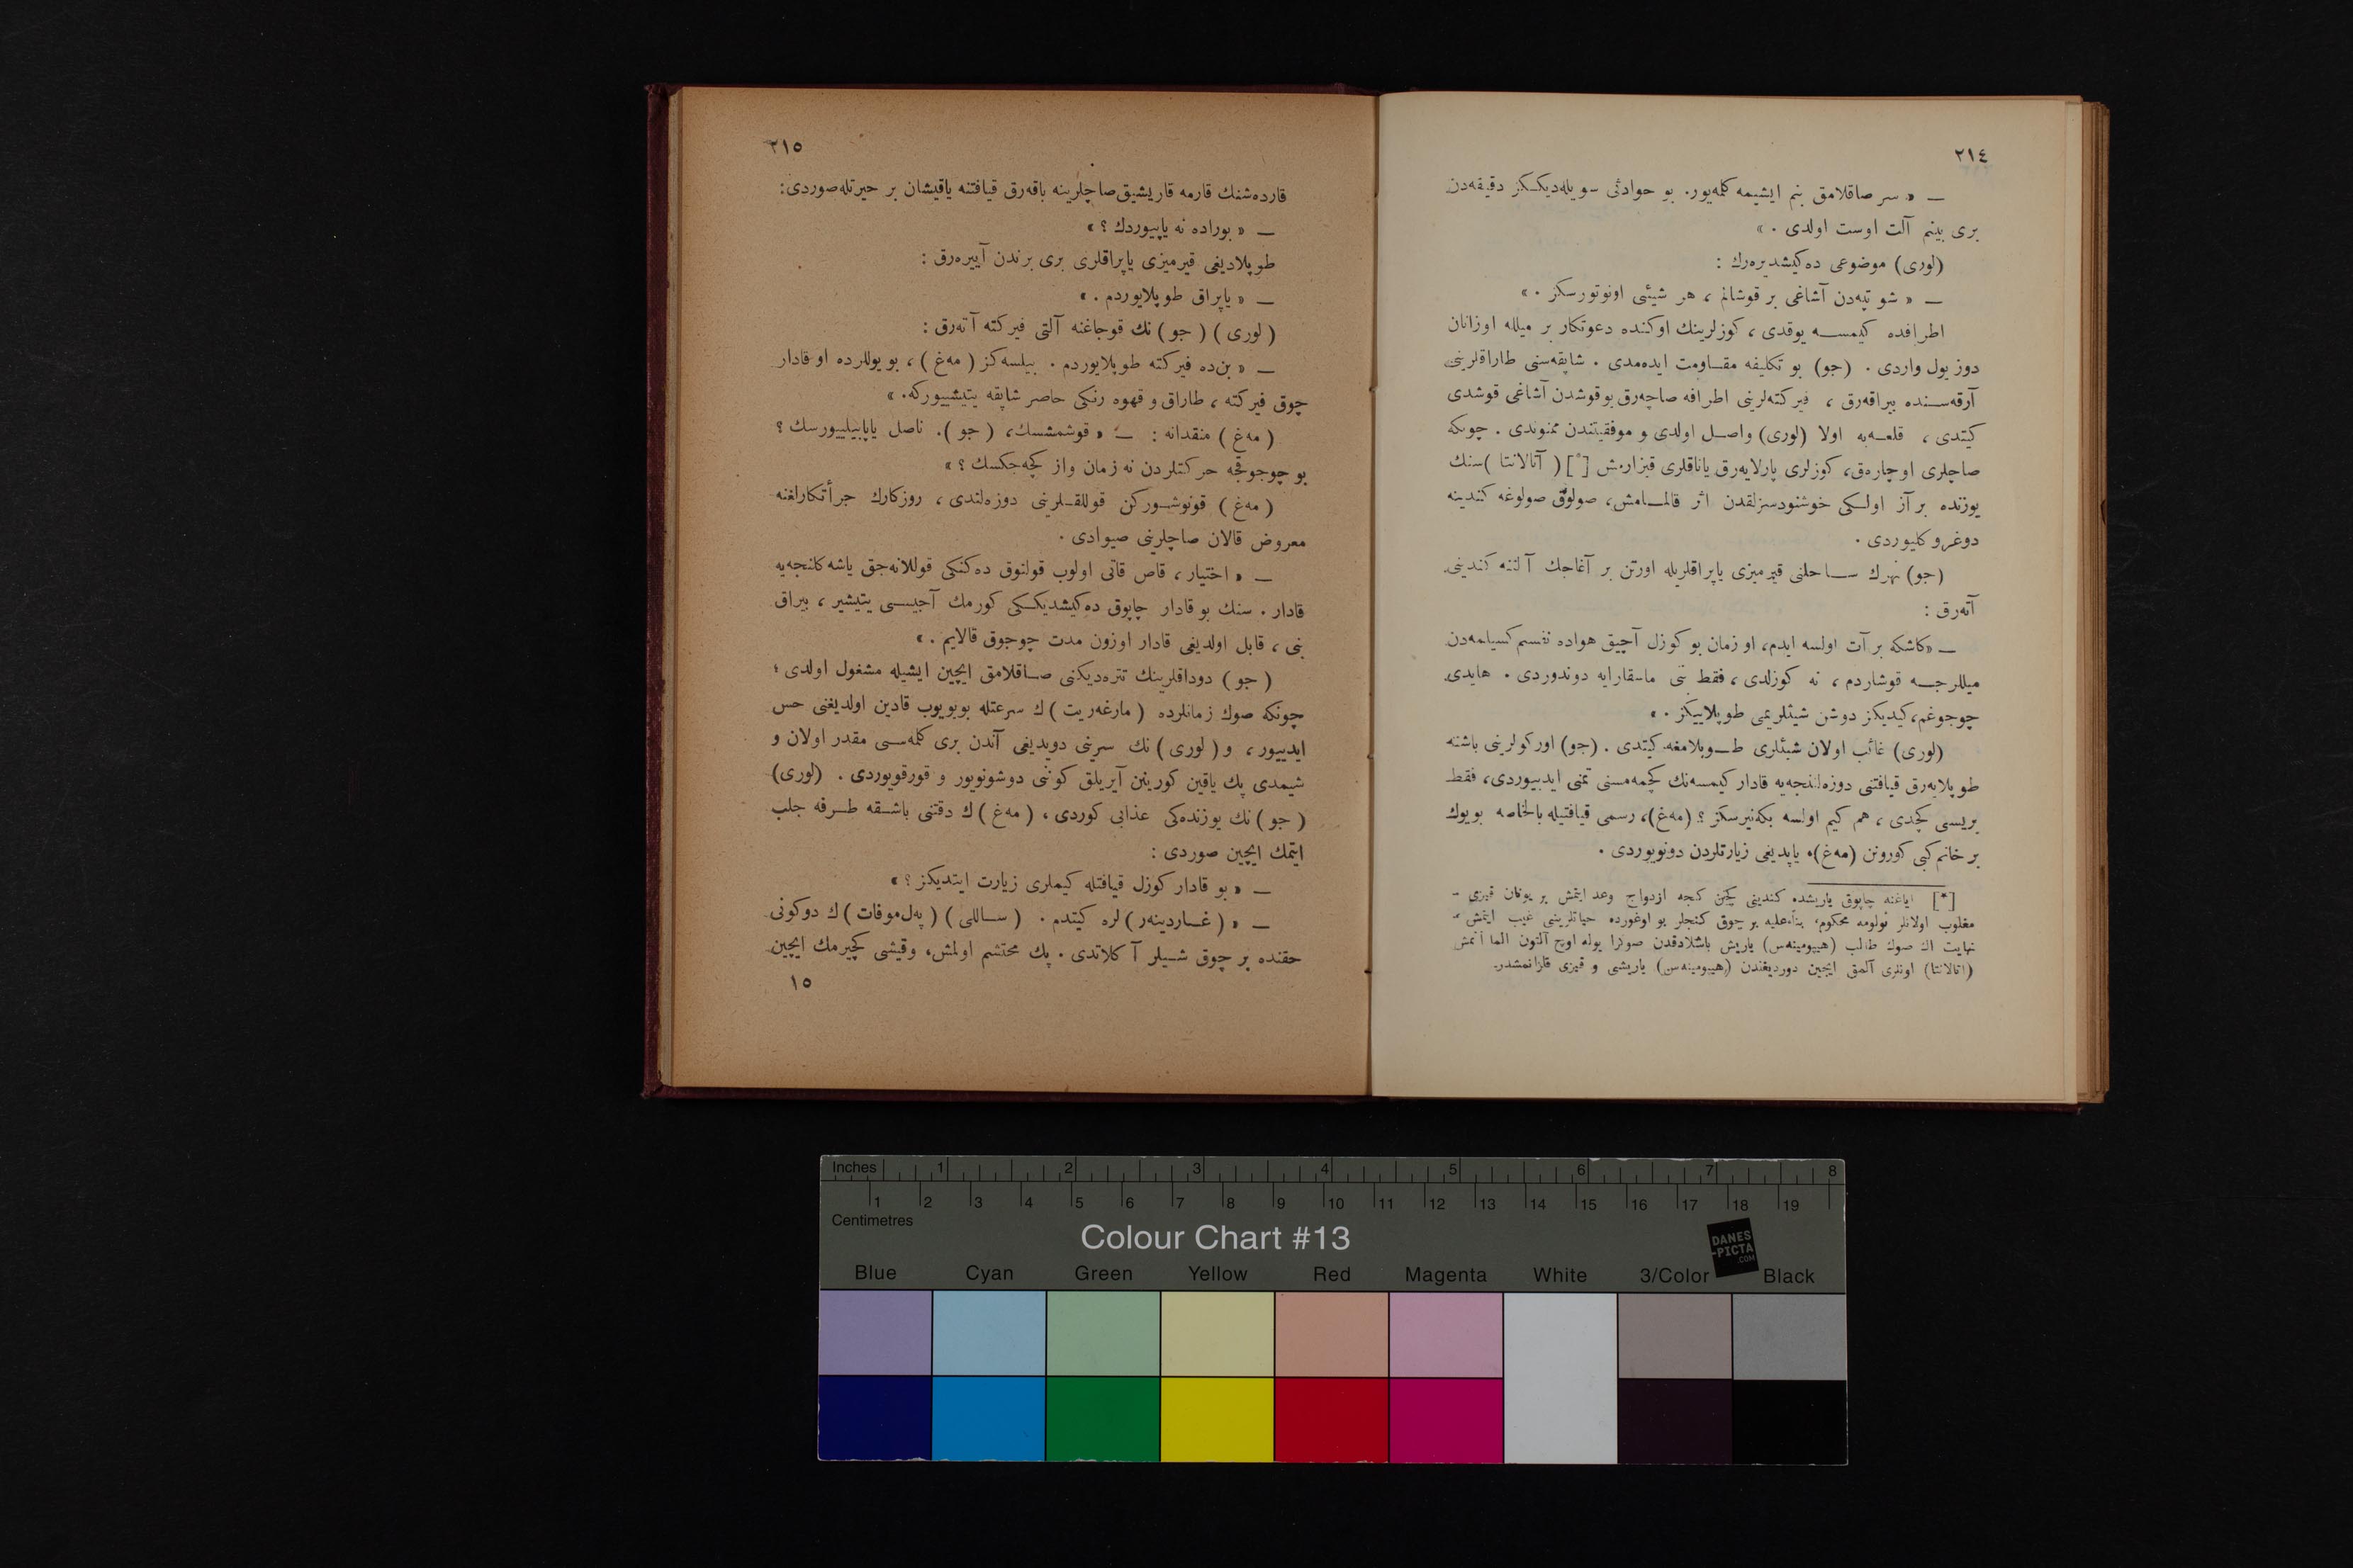 ٢١٤
— « سر صاقلامق بنم ايشيمه كلمه‌يور. بو حوادثی سويله‌ديككز دقيقه‌دن
بری بينم آلت اوست اولدی . »
(لوری) موضوعی ده‌كيشديره‌رك :
— « شو تپه‌دن آشاغی بر قوشالم ، هر شيئی اونوتورسكز . »
اطرافده كيمسه يوقدی ، كوزلرينك اوكنده دعوتكار بر ميلله اوزانان
دوز يول واردی . (جو) بو تكليفه مقاومت ايده‌مدی . شاپقه‌سنی طاراقلرينی
آرقه‌سنده بيراقه‌رق ، فيركته‌لرينی اطرافه صاچه‌رق يوقوشدن آشاغی قوشدی
كيتدی ، قلعه‌يه اولا (لوری) واصل اولدی و موفقيتندن ممنوندی . چونكه
صاچلری اوچاره‌ق، كوزلری پارلايه‌رق ياناقلری قيزارمش [*] ( آتالانتا )سنك
يوزنده بر آز اولكی خوشنودسزلقدن اثر قالمامش، صولوق صولوغه كندينه
دوغرو كليوردی .
(جو) نهرك ساحلنی قيرميزی ياپراقلريله اورتن بر آغاجك آلتنه كندينی
آته‌رق :
— «كاشكه بر آت اولسه ايدم، او زمان بو كوزل آچيق هواده نفسم كسيلمه‌دن
ميللرجه قوشاردم ، نه كوزلدی ، فقط بنی ماسقارايه دوندوردی . هايدی
چوجوغم، كيديكز دوشن شيئلريمی طوپلاييكز . »
(لوری) غائب اولان شيئلری طوپلامغه كيتدی . (جو) اوركولرينی باشنه
طوپلايه‌رق قيافتنی دوزه‌لتنجه‌يه قادار كيمسه‌نك كچمه‌مسنی تمنی ايدييوردی، فقط
بريسی كچدی ، هم كيم اولسه بكه‌نيرسكز ؟ (مه‌غ)، رسمی قيافتيله بالخاصه بويوك
بر خانم كبی كورونن (مه‌غ)، ياپديغی زيارتلردن دونويوردی .
[*] اياغنه چاپوق ياريشده كندينی كچن كنجه ازدواج وعد ايتمش بر يونان قيزی
مغلوب اولانلر ئولومه محكوم، بناءعليه بر چوق كنجلر بو اوغورده حياتلرينی غيب ايتمش
نهايت اك صوك طالب (هيپومينه‌س) ياريش باشلادقدن صوكرا يوله اوچ آلتون الما آتمش
(آتالانتا) اونلری آلمق ايچين دورديغندن (هيپومينه‌س) ياريشی و قيزی قازانمشدر.
٢١٥
قارده‌شنك قارمه قاريشيق صاچلرينه باقه‌رق قيافتنه ياقيشان بر حيرتله صوردی:
— « بوراده نه ياپيوردك ؟ »
طوپلاديغی قيرميزی ياپراقلری بری برندن آييره‌رق :
— « ياپراق طوپلايوردم . »
( لوری ) ( جو ) نك قوجاغنه آلتی فيركته آته‌رق :
— « بن‌ده فيركته طوپلايوردم . بيلسه‌كز ( مه‌غ ) ، بو يوللرده او قادار
چوق فيركته ، طاراق و قهوه رنكی حاصر شاپقه يتيشييوركه. »
( مه‌غ ) منقدانه : — « قوشمشسك، ( جو ). ناصل ياپابيلييورسك ؟
بو چوجوقجه حركتلردن نه زمان واز كچه‌جكسك ؟ »
( مه‌غ ) قونوشوركن قوللقلرينی دوزه‌لتدی ، روزكارك جرأتكارلغنه
معروض قالان صاچلرينی صيوادی .
— « اختيار ، قاص قاتی اولوب قولتوق ده‌كنكی قوللانه‌جق ياشه كلنجه‌يه
قادار . سنك بو قادار چاپوق ده‌كيشديككی كورمك آجيسی يتيشير ، بيراق
بنی ، قابل اولديغی قادار اوزون مدت چوجوق قالايم . »
( جو ) دوداقلرينك تتره‌ديكنی صاقلامق ايچين ايشيله مشغول اولدی ؛
چونكه صوك زمانلرده ( مارغه‌ريت )ك سرعتله بويويوب قادين اولديغنی حس
ايدييور، و ( لوری ) نك سرينی دويديغی آندن بری كلمه‌سی مقدر اولان و
شيمدی پك ياقين كورينن آيريلق كوننی دوشونويور و قورقويوردی . (لوری)
( جو ) نك يوزنده‌كی عذابی كوردی ، ( مه‌غ )ك دقتنی باشقه طرفه جلب
ايتمك ايچين صوردی :
— « بو قادار كوزل قيافتله كيملری زيارت ايتديكز ؟ »
— « ( غاردينه‌ر ) لره كيتدم . ( ساللی ) ( په‌ل‌موفات )ك دوكونی
حقنده بر چوق شيلر آكلاتدی . پك محتشم اولمش، وقيشی كچيرمك ايچين
١٥
Inches 1 2 3 4 5 6 7 8
1 2 3 4 5 6 7 8 9 10 11 12 13 14 15 16 17 18 19
Centimetres
Colour Chart #13
DANES
-PICTA
.COM
Blue Cyan Green Yellow Red Magenta White 3/Color Black